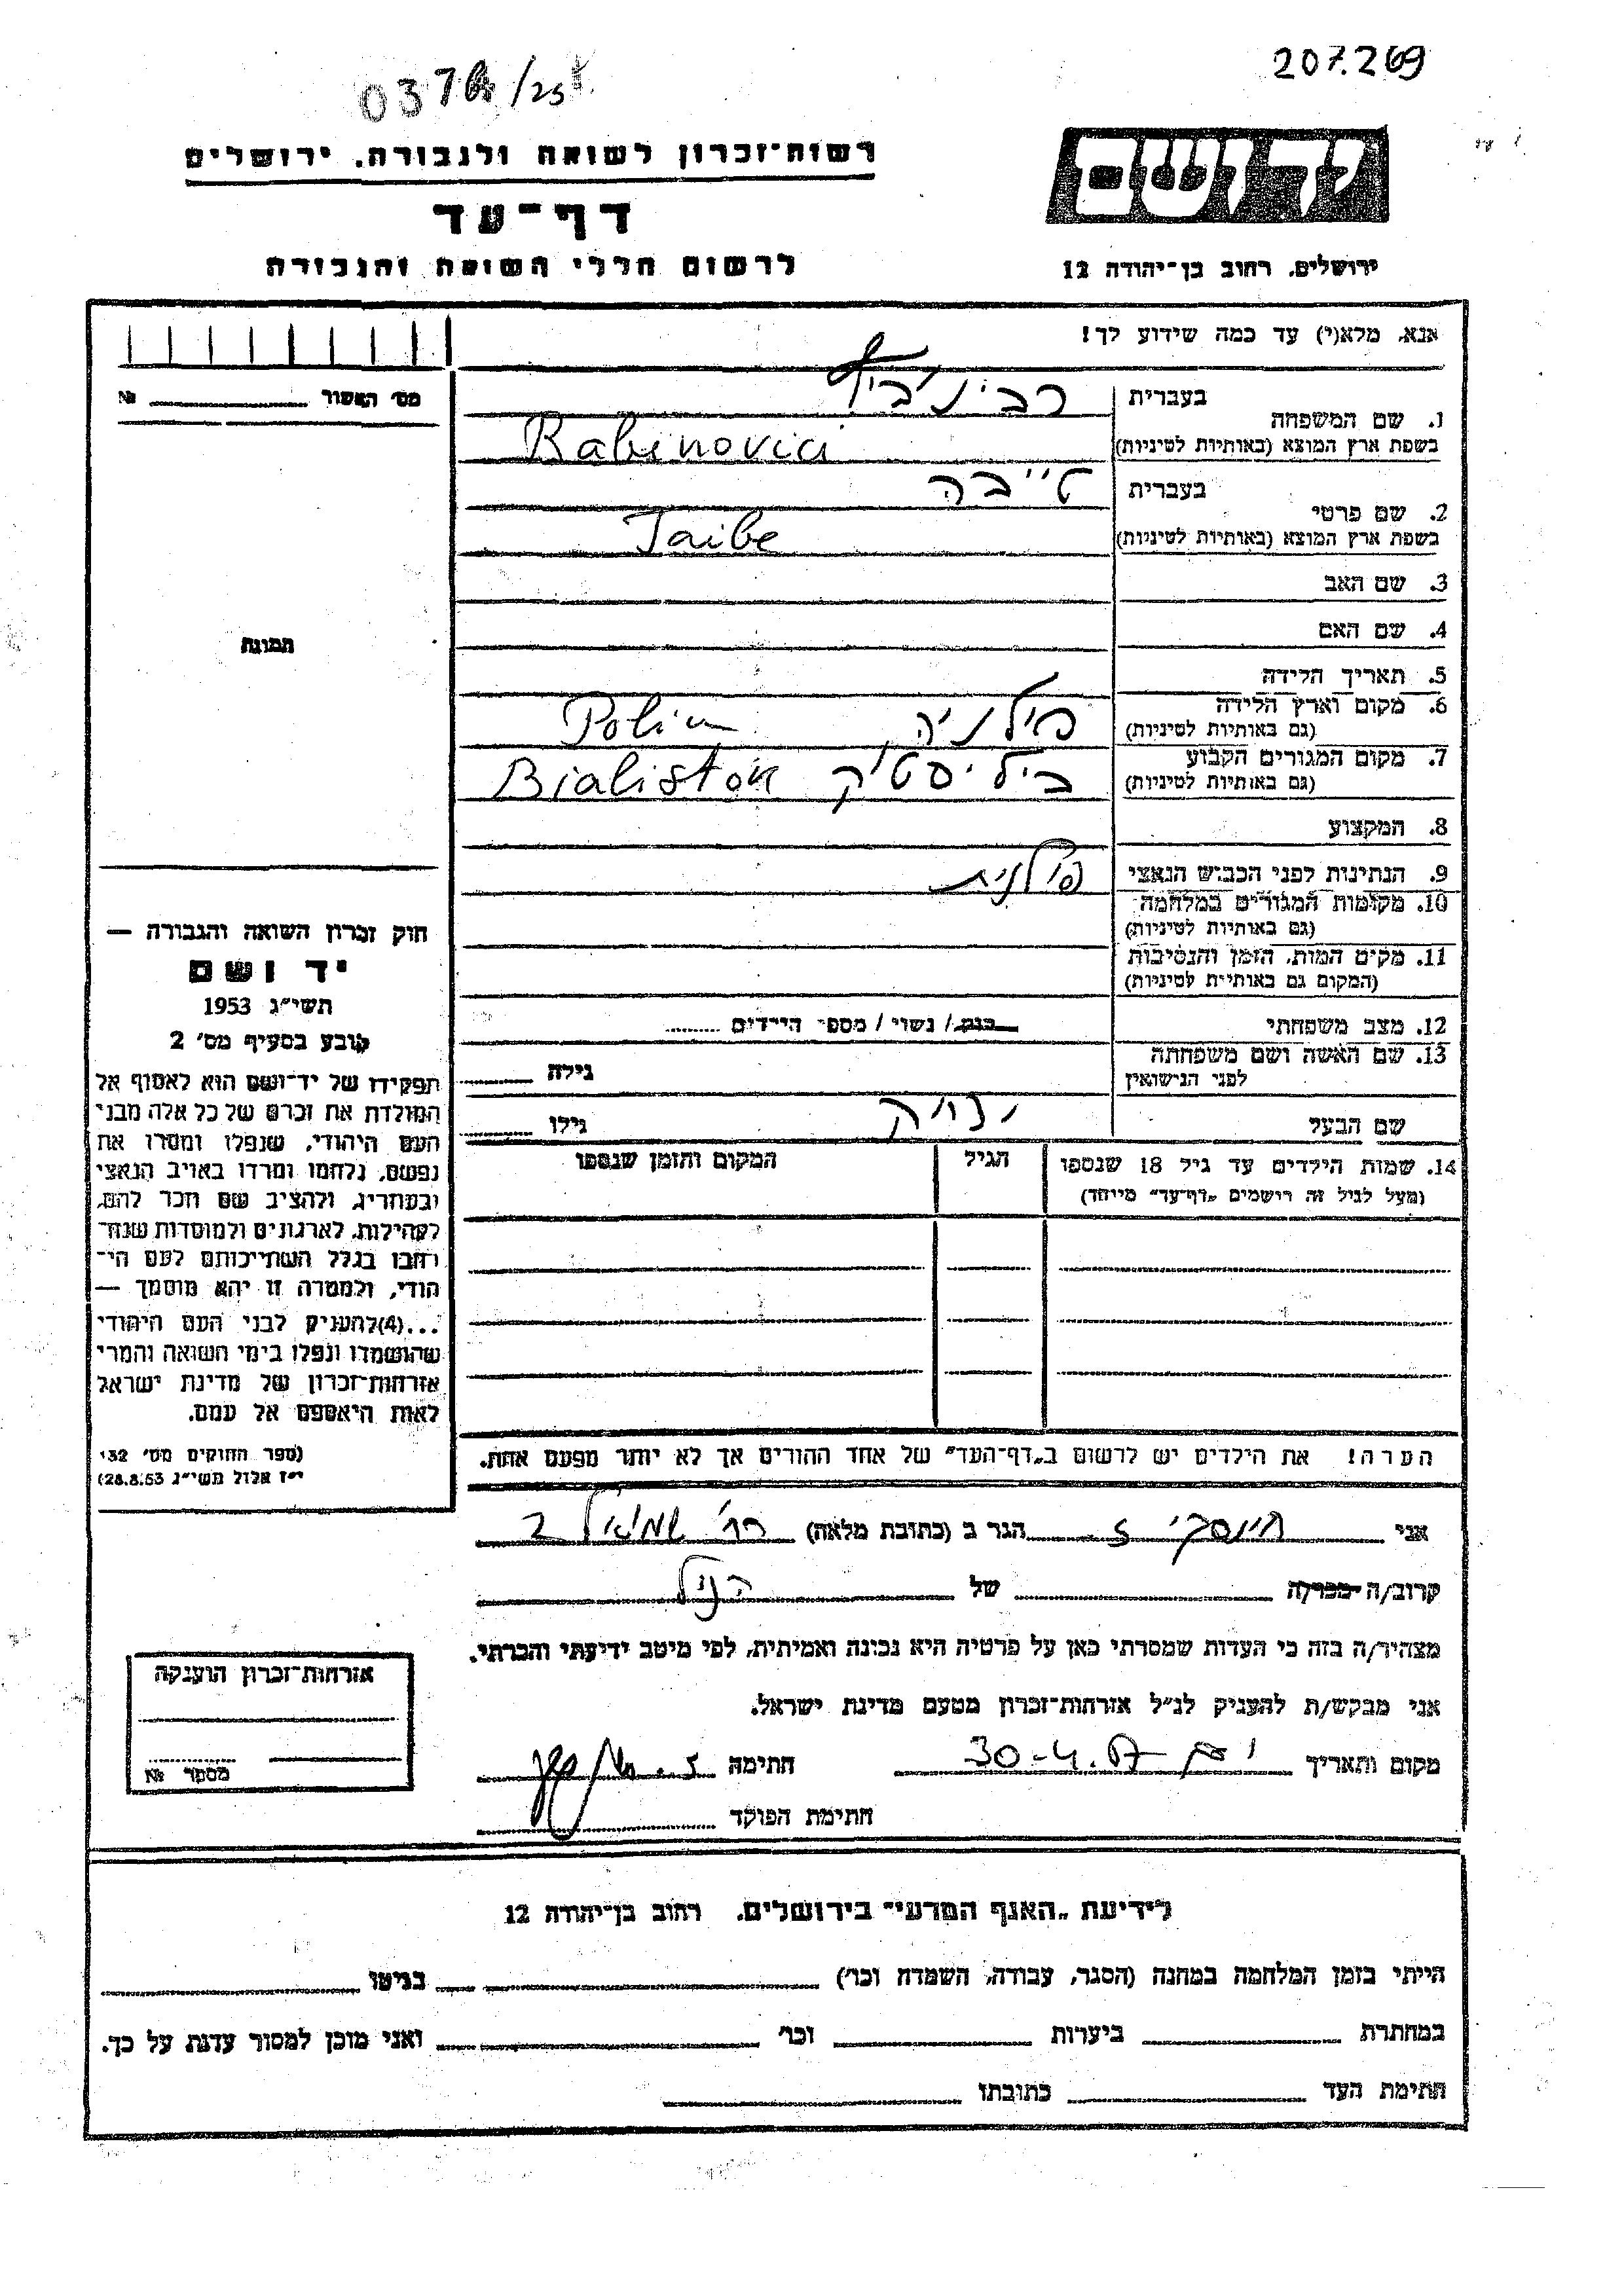 207.269
רשות־זכרון לשואה ולגבורה, ירושלים
דף־עד
לרשום חללי השואה והגבורה
יד ושם
ירושלים, רחוב בן־יהודה 12
אנא, מלא(י) עד כמה שידוע לך!
מס׳ האשור № 
1. שם המשפחה
בעברית
רבינוביץ
בשפת ארץ המוצא (באותיות לטיניות)
Rabinovici
2. שם פרטי
בעברית
טייבה
בשפת ארץ המוצא (באותיות לטיניות)
Taibe
3. שם האב
4. שם האם
תמונה
5. תאריך הלידה
6. מקום וארץ הלידה
(גם באותיות לטיניות)
פולניה Polin
7. מקום המגורים הקבוע
(גם באותיות לטיניות)
ביליסטוק Bialistok
8. המקצוע
9. הנתינות לפני הכבוש הנאצי
פולנית
10. מקומות המגורים במלחמה
(גם באותיות לטיניות)
11. מקום המות, הזמן והנסיבות
(המקום גם באותיות לטיניות)
12. מצב משפחתי
רווק / נשוי / מספר הילדים
13. שם האשה ושם משפחתה
לפני הנישואין
גילה
שם הבעל
גילו
14. שמות הילדים עד גיל 18 שנספו
(מעל לגיל זה רישמים „דף־עד״ מייחד)
הגיל
המקום והזמן שנספו
חוק זכרון השואה והגבורה —
יד ושם
תשי״ג 1953
קובע בסעיף מס׳ 2
תפקידו של יד־ושם הוא לאסוף אל
המולדת את זכרם של כל אלה מבני
העם היהודי, שנפלו ומסרו את
נפשם, נלחמו ומרדו באויב הנאצי
ובעוזריו, ולהציב שם וזכר להם,
לקהילות, לארגונים ולמוסדות שנח־
רבו בגלל השתייכותם לעם הי־
הודי, ולמטרה זו יהא מוסמך —
...(4)להעניק לבני העם היהודי
שהושמדו ונפלו בימי השואה והמרי
אזרחות־זכרון של מדינת ישראל
לאות היאספם אל עמם.
(ספר החוקים מס׳ 132
י״ז אלול תשי״ג 28.8.53)
הערה! את הילדים יש לרשום ב„דף־העד״ של אחד ההורים אך לא יותר מפעם אחת.
אני הגר ב (כתובת מלאה)
קרוב/ה מכר/ה של הנ״ל
מצהיר/ה בזה כי העדות שמסרתי כאן על פרטיה היא נכונה ואמיתית, לפי מיטב ידיעתי והכרתי.
אני מבקש/ת להעניק לנ״ל אזרחות־זכרון מטעם מדינת ישראל.
מקום ותאריך 30-4.67 חתימה
חתימת הפוקד
אזרחות־זכרון הוענקה
מספר №
לידיעת „האגף המדעי״ בירושלים, רחוב בן־יהודה 12
הייתי בזמן המלחמה במחנה (הסגר, עבודה, השמדה וכו׳) בגיטו
במחתרת ביערות וכו׳ ואני מוכן למסור עדות על כך.
חתימת העד כתובתו